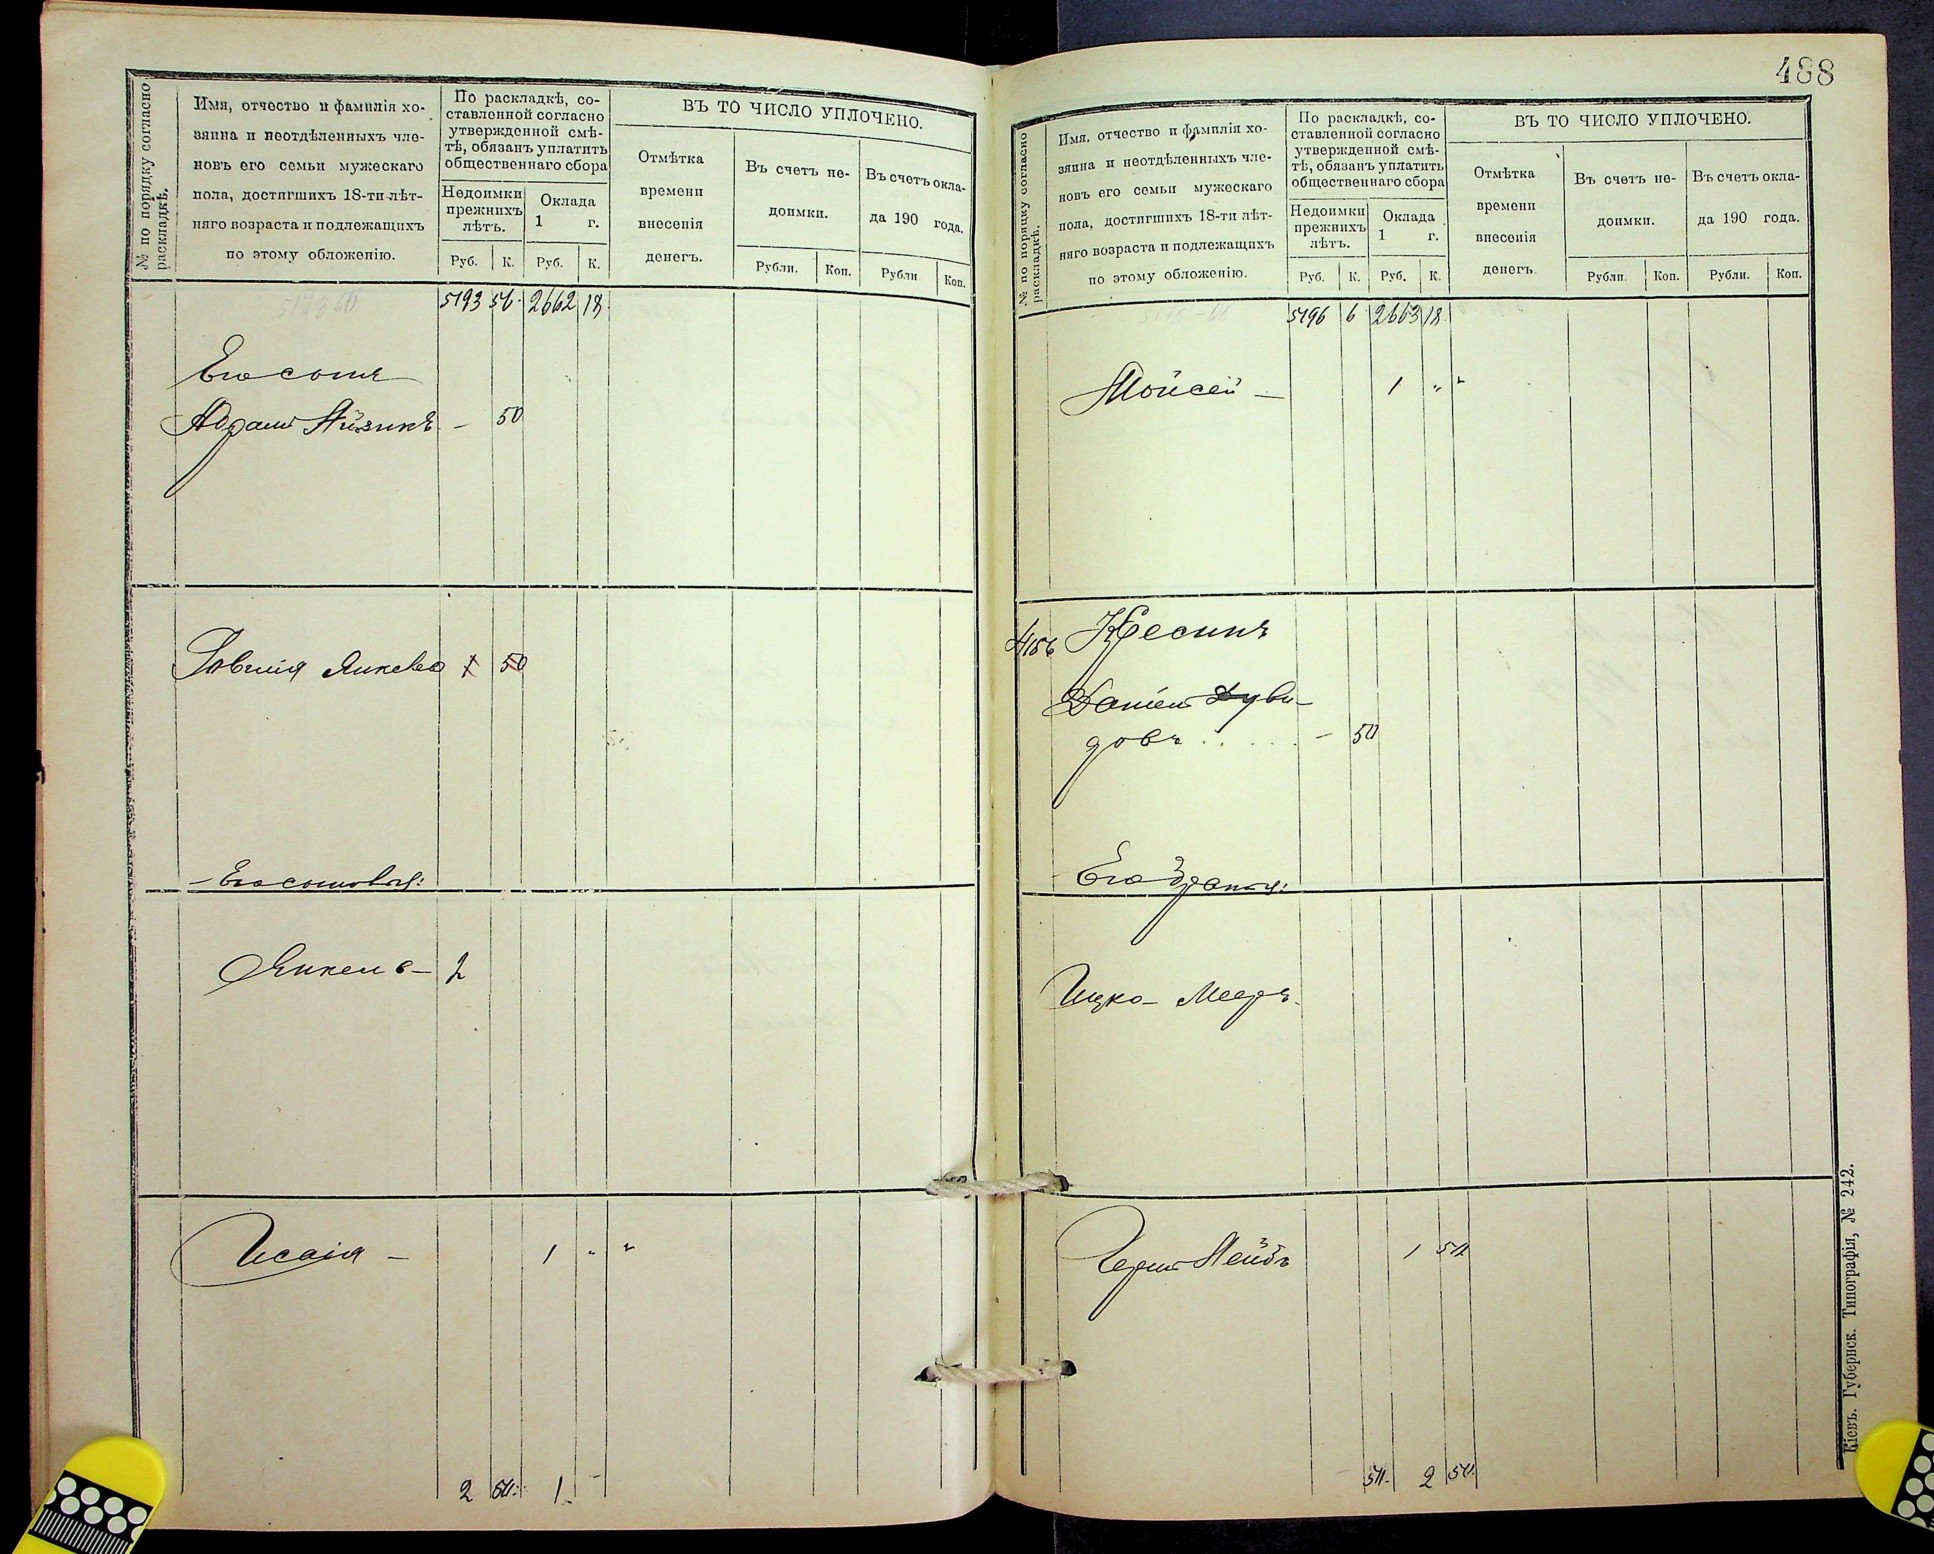 № по порядку согласно
раскладкѣ.
Имя, отчество и фамилія хо-
зяина и неотдѣленныхъ чле-
новъ его семьи мужескаго
пола, достигшихъ 18-ти лѣт-
няго возраста и подлежащихъ
по этому обложенію.
По раскладкѣ, со-
ставленной согласно
утвержденной смѣ-
тѣ, обязанъ уплатить
общественнаго сбора
Недоимки
прежнихъ
лѣтъ.
Оклада
1 г.
Руб. К. Руб. К.
ВЪ ТО ЧИСЛО УПЛОЧЕНО.
Отмѣтка
времени
внесенія
денегъ.
Въ счетъ не-
доимки.
Рубли. Коп.
Въ счетъ окла-
да 190 года.
Рубли Коп.
5193 56 2662 18
Его сынъ
Абрамъ Айзикъ - 50
Янкелев 1 50
- Его сыновья:
Янкель - 2
Исаія - 1 " "
2 50 1 -
488
№ по порядку согласно
раскладкѣ.
Имя, отчество и фамилія хо-
зяина и неотдѣленныхъ чле-
новъ его семьи мужескаго
пола, достигшихъ 18-ти лѣт-
няго возраста и подлежащихъ
по этому обложенію.
По раскладкѣ, со-
ставленной согласно
утвержденной смѣ-
тѣ, обязанъ уплатить
общественнаго сбора
Недоимки
прежнихъ
лѣтъ.
Оклада
1 г.
Руб. К. Руб. К.
ВЪ ТО ЧИСЛО УПЛОЧЕНО.
Отмѣтка
времени
внесенія
денегъ.
Въ счетъ не-
доимки.
Рубли. Коп.
Въ счетъ окла-
да 190 года.
Рубли. Коп.
5196 6 2663 18
Мойсей - 1 " "
4156
Даніил Дуви-
довъ . . . . . - 50
Его братья:
Ицко - Мееръ
Герш Лейбъ 1 50
50 2 50
Кіевъ. Губернск. Типографія, № 242.